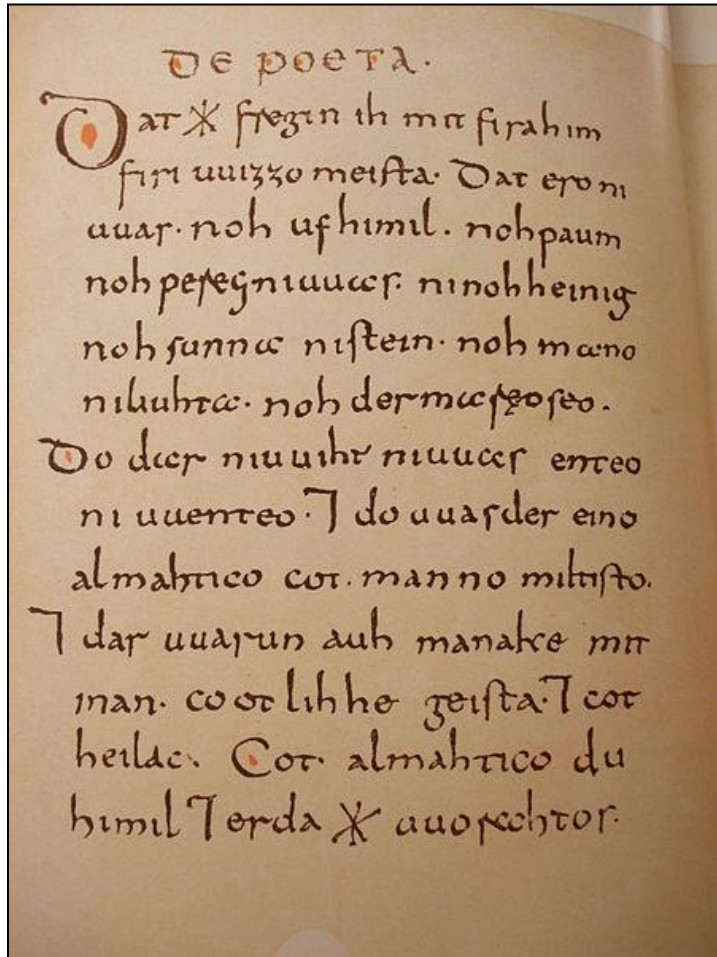 DE POETA.
Dat * fregin ih mit firahim
firi uuizzo meista. Dat ero ni
uuas. noh ufhimil. noh paum
noh pereg ni uuas. ninohheinig
noh sunna nistein. noh mano
niliuhta. noh der mareo seo.
Do dar niuuiht niuuas enteo
ni uuenteo. ⁊ do uuas der eino
almahtico cot. manno miltisto.
⁊ dar uuarun auh manake mit
inan. cootlihhe geista. ⁊ cot
heilac. Cot. almahtico du
himil ⁊ erda * uuorahtos.